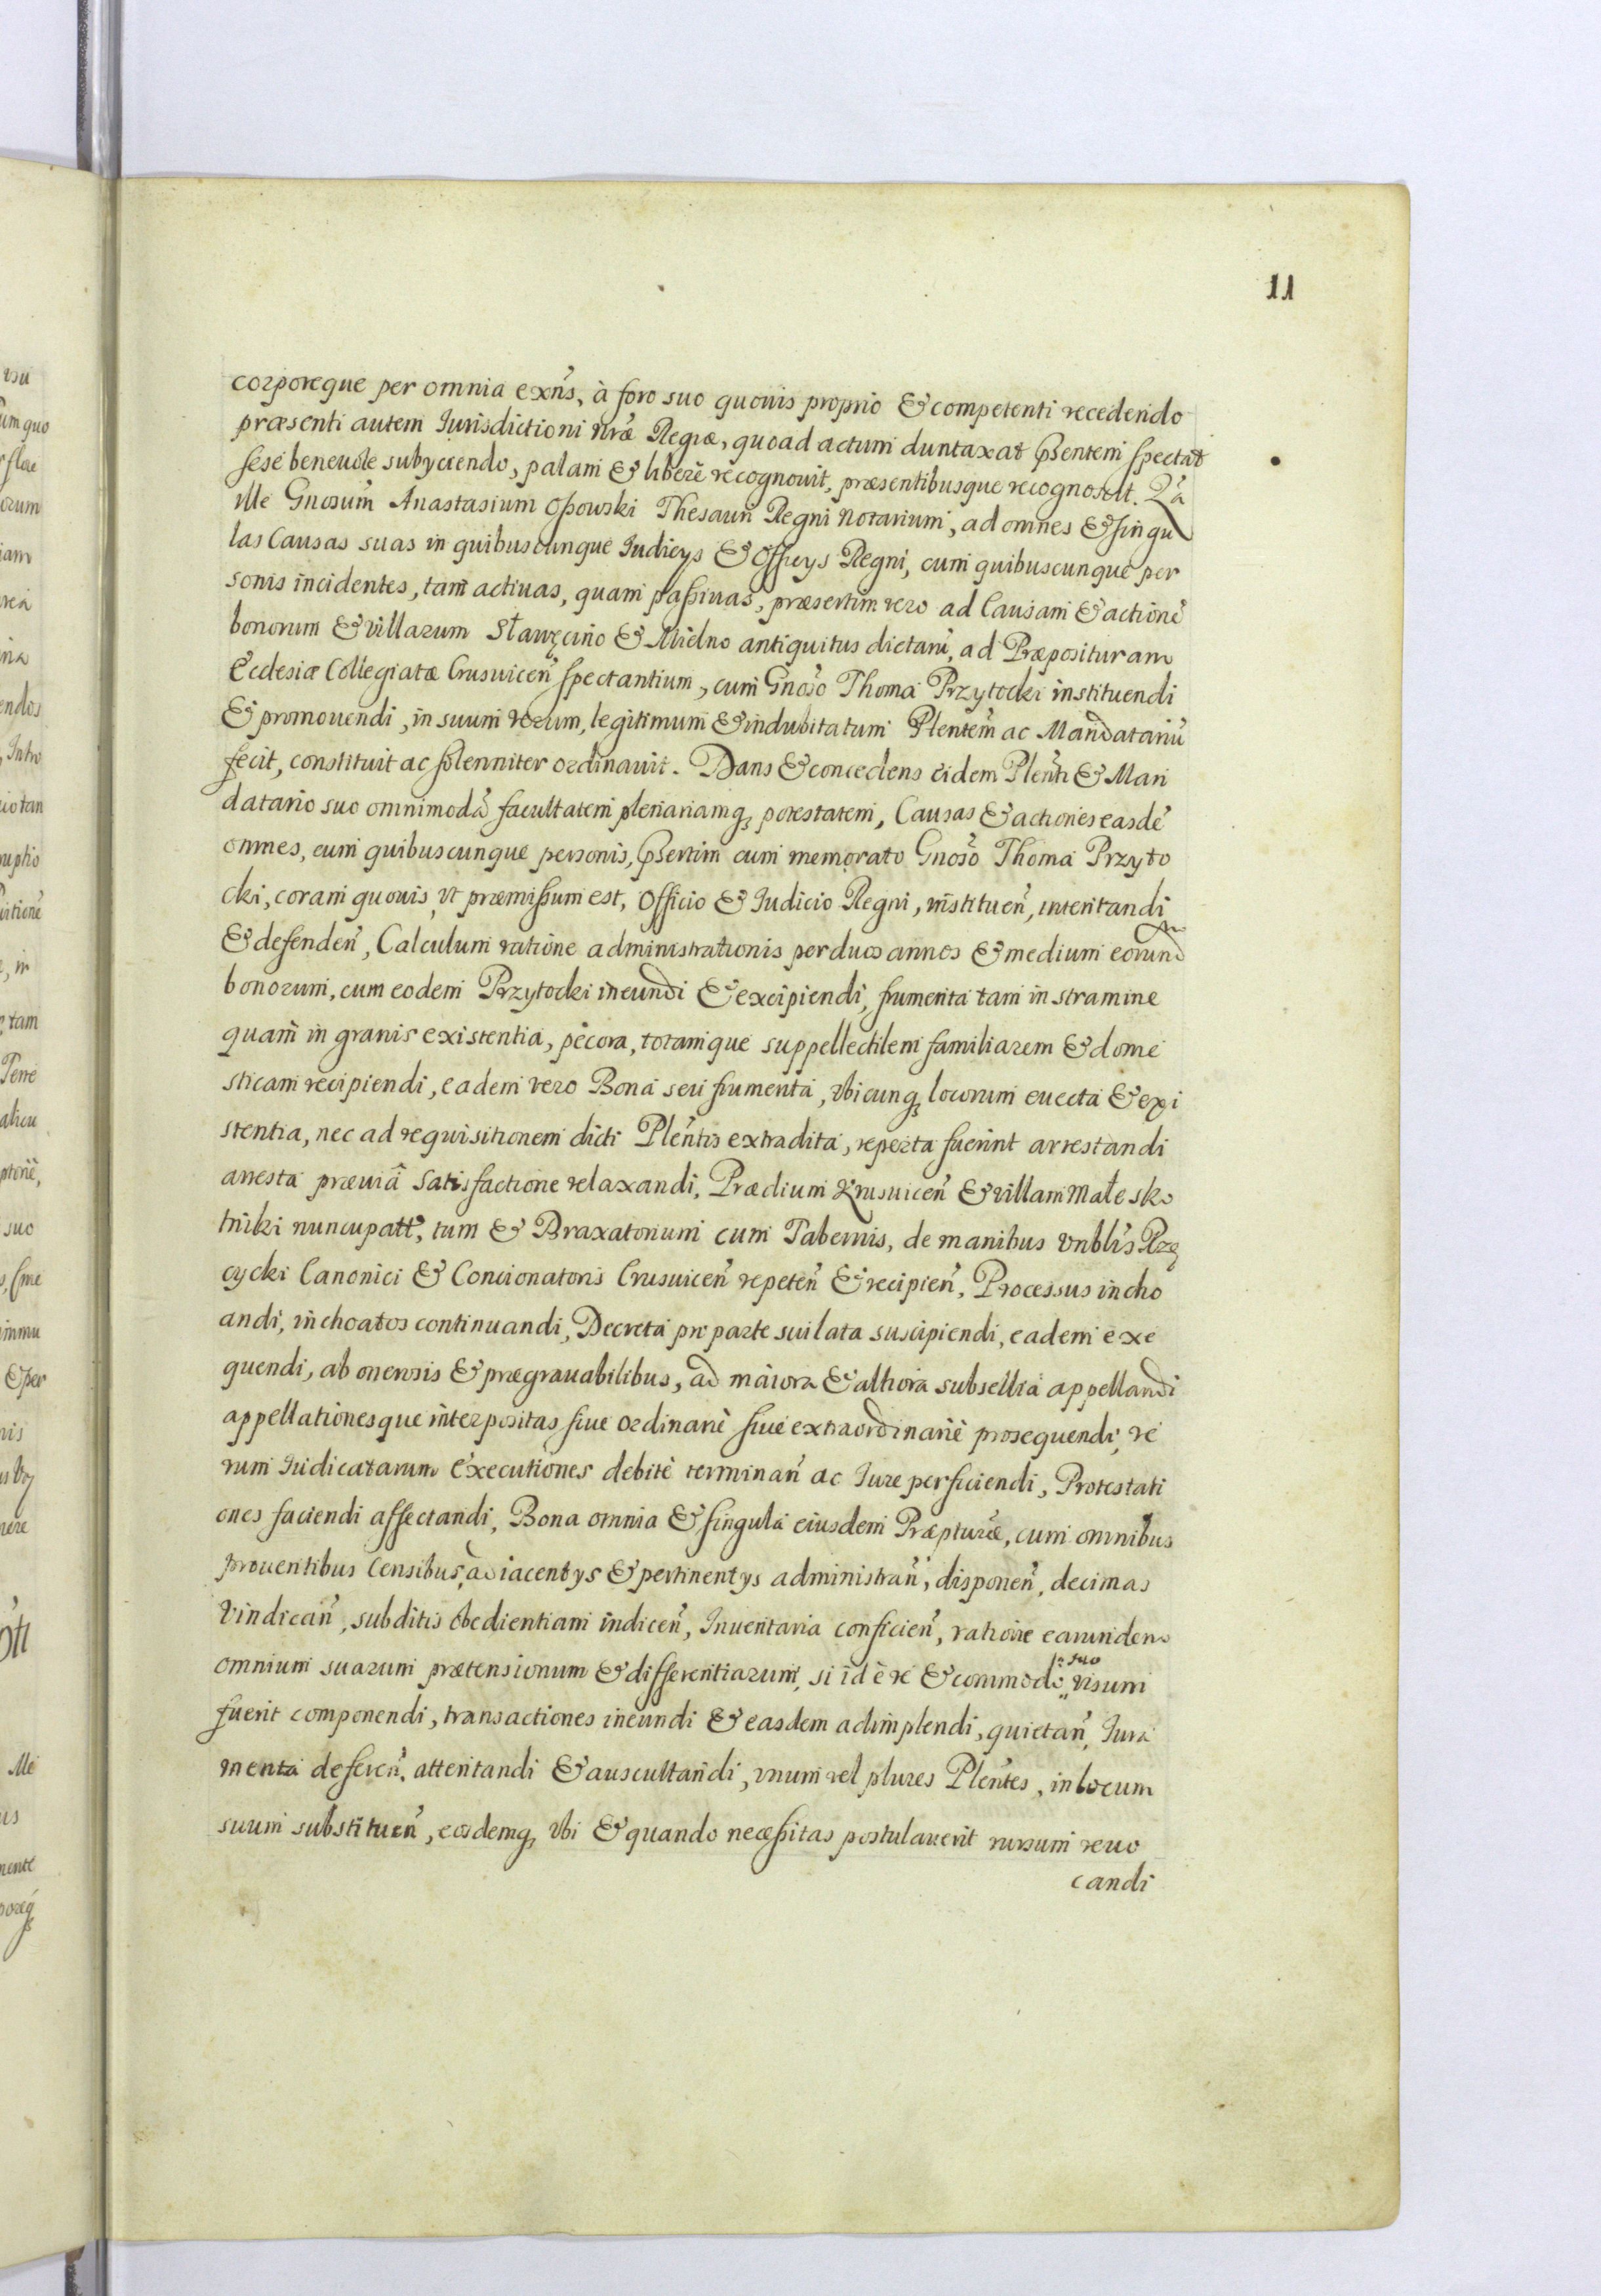 11
corporeque per omnia exñs, à foro suo quouis proprio & competenti recedendo
præsenti autem Iurisdictioni nr̃æ Regiæ, quoad actum duntaxat p̃sentem spectat
sese beneuole subyciendo, palam & liberè recognouit, præsentibusque recognoscit. Quia
ille Gnosum̃ Anastasium Ossowski Thesaurĩ Regni Notarium, ad omnes & singu
las Causas suas in quibuscunque Iudicys & Officys Regni, cum quibuscunque per
sonis incidentes, tam actiuas, quam passiuas, præsertim vero ad Causam & actionẽ
bonorum & villarum Sławęcino & Mielno antiquitus dictarũ, ad Præposituram
Ecclesiæ Collegiatæ Crusuiceñ spectantium, cum Gnoso Thoma Przytocki instituendi
& promouendi, in suum verum, legitimum & indubitatum Plentem̃ ac Mandatariũ
fecit, constituit ac solenniter ordinauit. Dans & concedens eidem Pleñti & Man
datario suo omnimodã facultatem plenariamq₃ potestatem, Causas & actiones easdẽ
omnes, cum quibuscunque personis, p̃sertim cum memorato Gnoso Thoma Przyto
cki, coram quouis, vt præmissum est, Officio & Iudicio Regni, institueñ, intentandi
& defendeñ, Calculum ratione administrationis per duos annos & medium eorund
bonorum, cum eodem Przytocki ineundi & excipiendi, frumenta tam in stramine
quam in granis existentia, pecora, totamque suppellectilem familiarem & dome
sticam recipiendi, eadem vero Bona seu frumenta, vbicunq₃ locorum euecta & exi
stentia, nec ad requisitionem dicti Pleñtis extradita, reperta fuerint arrestandi
arresta præuiâ satisfactione relaxandi, Prædium Krusuiceñ & villam Małe sko
tniki nuncupatt, tum & Braxatorium cum Tabernis, de manibus Vnblĩs Rzę
cycki Canonici & Concionatoris Crusuiceñ repeteñ & recipieñ, Processus incho
andi, inchoatos continuandi, Decreta pro parte sui lata suscipiendi, eadem exe
quendi, ab onerosis & prægrauabilibus, ad maiora & altiora subsellia appellandi
appellationesque interpositas siue ordinariè siue extraordinariè prosequendi, re
rum Iudicatarum executiones debitè terminañ ac Iure perficiendi, Protestati
ones faciendi affectandi, Bona omnia & singula eiusdem Præpturæ, cum omnibus
prouentibus Censibus, adiacentys & pertinentys administrañ, disponeñ, decimas
vindicañ, subditis obedientiam indiceñ, Inuentaria conficieñ, ratione earundem
omnium suarum prætensionum & differentiarum, si id è re & commodo suo visum
fuerit componendi, transactiones ineundi & easdem adimplendi, quietañ, Iura
menta defereñ. attentandi & auscultandi, vnum vel plures Pleñtes, in locum
suum substitueñ, eosdemq₃ vbi & quando necessitas postulauerit rursum reuo
candi